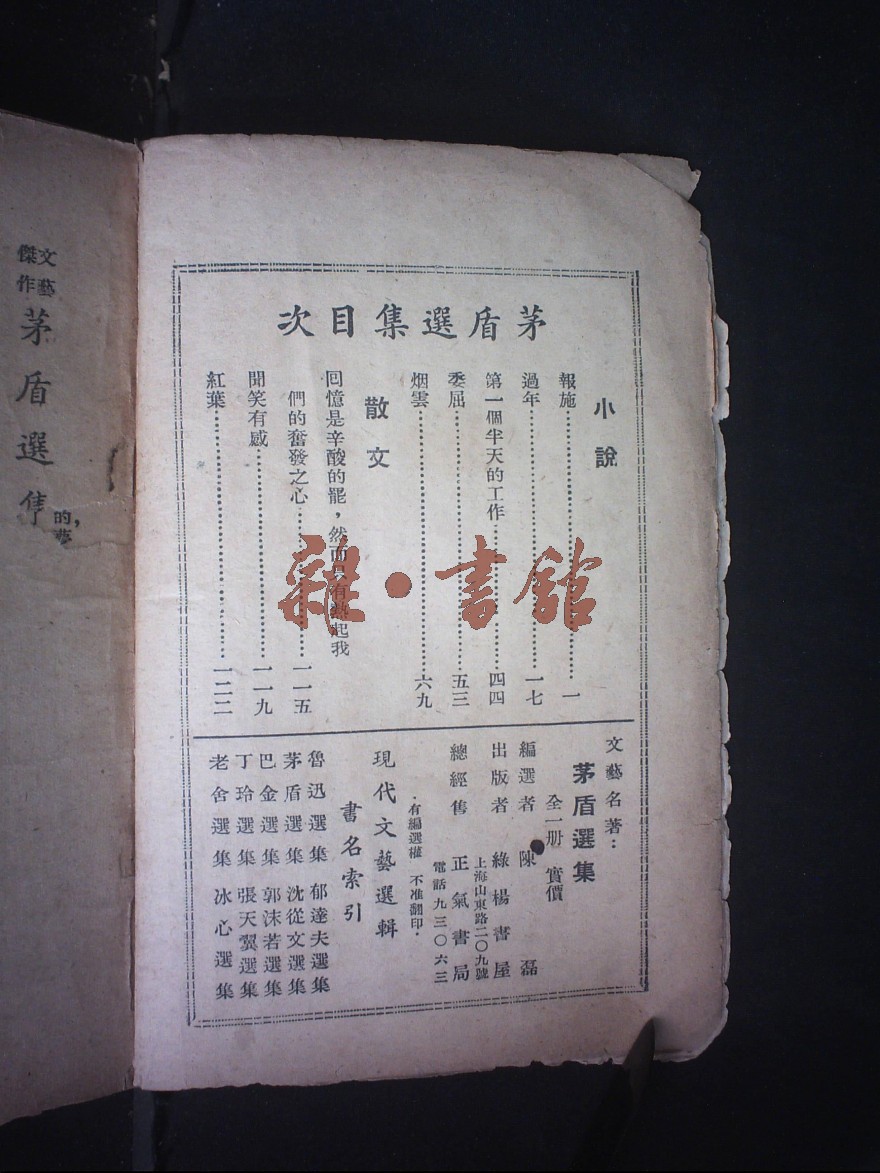 茅盾選集目次
小說
報施⋯⋯一
過年⋯⋯一七
第一個半天的工作⋯⋯四四
委屈⋯⋯五三
烟雲⋯⋯六九
散文
回憶是辛酸的罷，然而只有激起我
們的奮發之心⋯⋯一一五
聞笑有感⋯⋯一一九
紅葉⋯⋯一二二
文藝名著：
茅盾選集
全一册 實價
編選者 陳磊
出版者 綠楊書屋
上海山東路二〇九號
總經售 正氣書局
電話九三〇六三
·有編選權 不准翻印·
現代文藝選輯
書名索引
魯迅選集 郁達夫選集
茅盾選集 沈從文選集
巴金選集 郭沫若選集
丁玲選集 張天翼選集
老舍選集 冰心選集
文藝
傑作
茅盾選集
的，
雜·書館